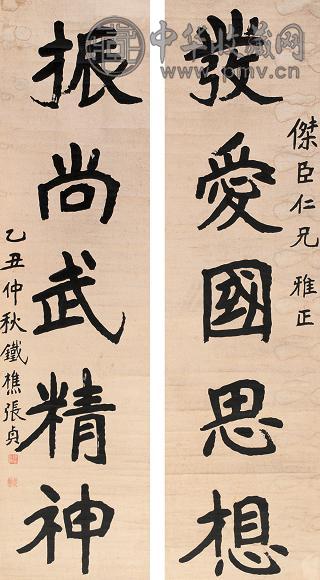 中华收藏网
www.pmv.cn
發愛國思想
傑臣仁兄 雅正
振尚武精神
乙丑仲秋鐵樵張貞